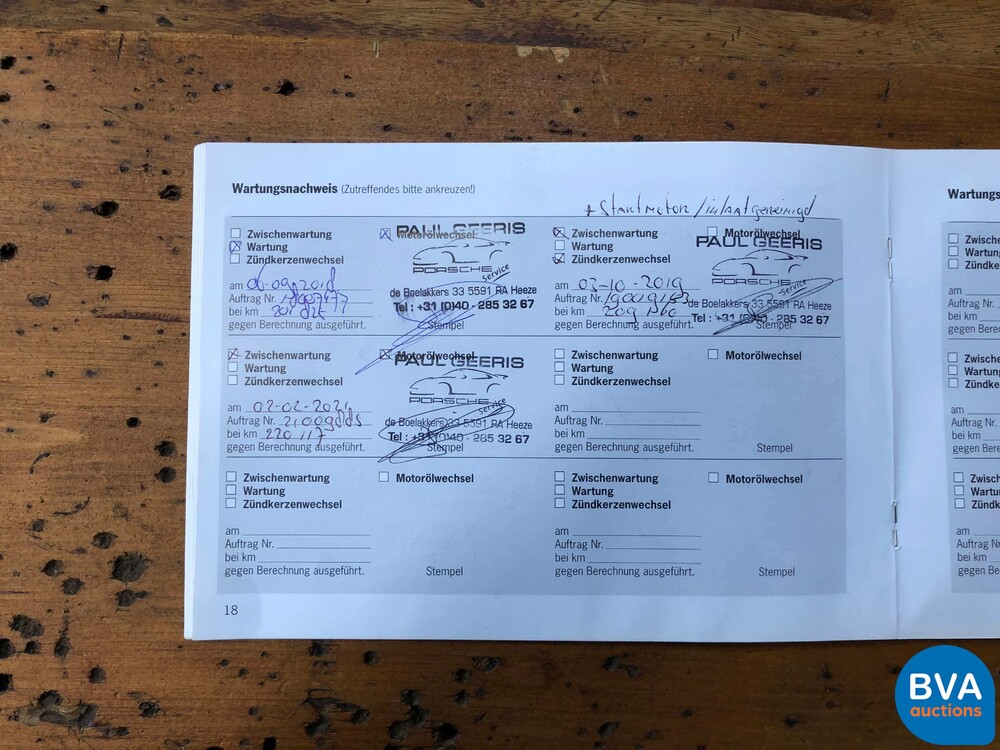 Wartungsnachweis (Zutreffendes bitte ankreuzen!)
+ Startmotor / inlaat gereinigd
Zwischenwartung
Wartung
Zündkerzenwechsel
Motorölwechsel
am 06-09-2018
Auftrag Nr.
bei km
gegen Berechnung ausgeführt.
PAUL GEERIS
PORSCHE service
de Boelakkers 33 5591 RA Heeze
Tel : +31 (0)40 - 285 32 67
Stempel
Zwischenwartung
Wartung
Zündkerzenwechsel
Motorölwechsel
am 03-10-2019
Auftrag Nr.
bei km
gegen Berechnung ausgeführt.
PAUL GEERIS
PORSCHE service
de Boelakkers 33 5591 RA Heeze
Tel : +31 (0)40 - 285 32 67
Stempel
Zwischenwartung
Wartung
Zündkerzenwechsel
Motorölwechsel
am 02-02-2021
Auftrag Nr.
bei km 220 117
gegen Berechnung ausgeführt.
PAUL GEERIS
PORSCHE service
de Boelakkers 33 5591 RA Heeze
Tel : +31 (0)40 - 285 32 67
Stempel
Zwischenwartung
Wartung
Zündkerzenwechsel
Motorölwechsel
am
Auftrag Nr.
bei km
gegen Berechnung ausgeführt.
Stempel
Zwischenwartung
Wartung
Zündkerzenwechsel
Motorölwechsel
am
Auftrag Nr.
bei km
gegen Berechnung ausgeführt.
Stempel
Zwischenwartung
Wartung
Zündkerzenwechsel
Motorölwechsel
am
Auftrag Nr.
bei km
gegen Berechnung ausgeführt.
Stempel
18
Wartungs
Zwisch
Wartung
Zündk
am
Auftrag N
bei km
gegen Be
Zwisch
Wartung
Zündk
am
Auftrag N
bei km
gegen Be
Zwisch
Wartun
Zündk
am
Auftrag N
bei km
gegen Be
BVA
auctions